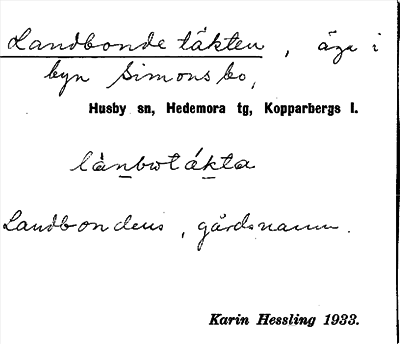 Landbondetäkten, äga i
byn Simonsbo,
Husby sn, Hedemora tg, Kopparbergs l.
lànbωtákta
Landbondens, gårdsnamn.
Karin Hessling 1933.